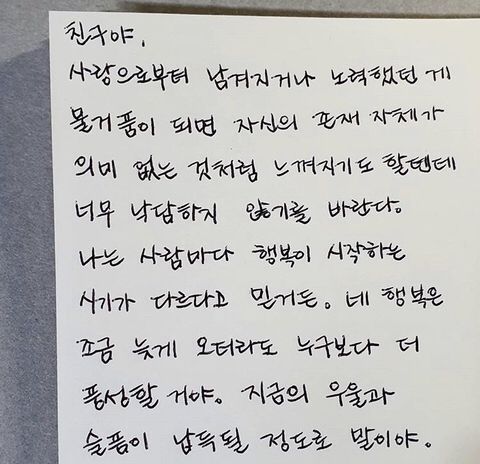 친구야.
사랑으로부터 남겨지거나 노력했던 게
물거품이 되면 자신의 존재 자체가
의미 없는 것처럼 느껴지기도 할텐데
너무 낙담하지 않기를 바란다.
나는 사람마다 행복이 시작하는
시기가 다르다고 믿거든. 네 행복은
조금 늦게 오더라도 누구보다 더
풍성할 거야. 지금의 우울과
슬픔이 납득될 정도로 말이야.